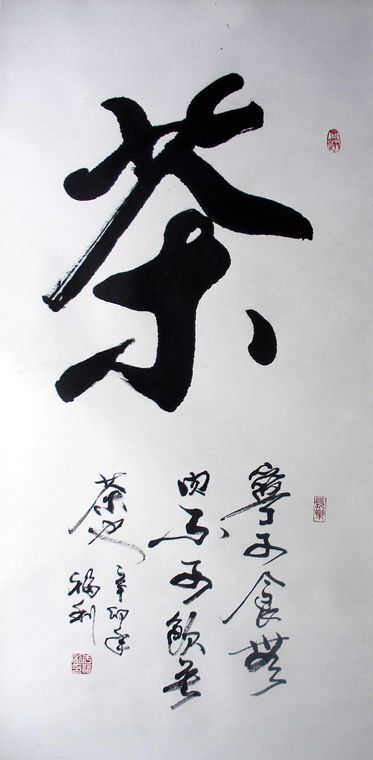 茶
寧可食無
肉不可飲無
茶也
辛卯年
福利
長樂